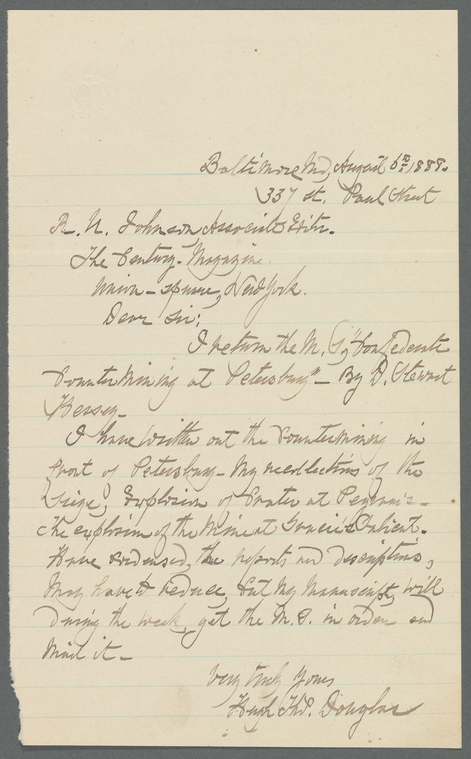 Baltimore Md, August 6th 1888.
337 St. Paul Street
R. U. Johnson Associate Editr.
The Century Magazine
Union-square, New York.
Dear Sir;
I return the M.S, "Confederate
Countermining at Petersburg" - By D. Stewart
Hessey -
I have written out the Countermining in
front of Petersburg - My recollections of the
Seige, Explosion of Crater at Pegram's -
The explosion of the Mine at Gracie's Salient.
Have condensed, the reports and descriptions,
May have to reduce, but my Manuscript, will
during the week, get the M.S. in order and
Mail it -
Very truly yours
Hugh Thos. Douglas